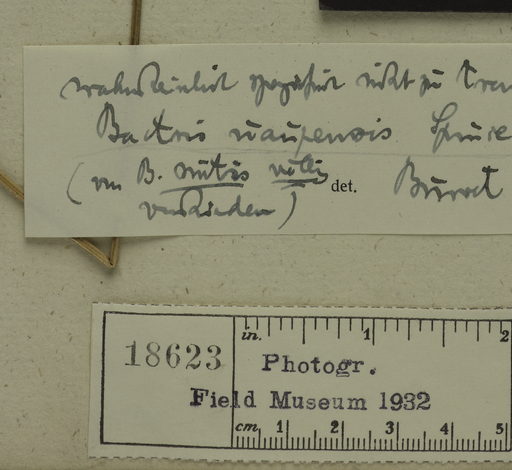 wahrscheinlich spezifisch nicht zu tren
Bactris uaupensis Spruce
(von B. mitis völlig det. Burret
verschieden)
in. 1 2
18623 Photogr.
Field Museum 1932
cm 1 2 3 4 5